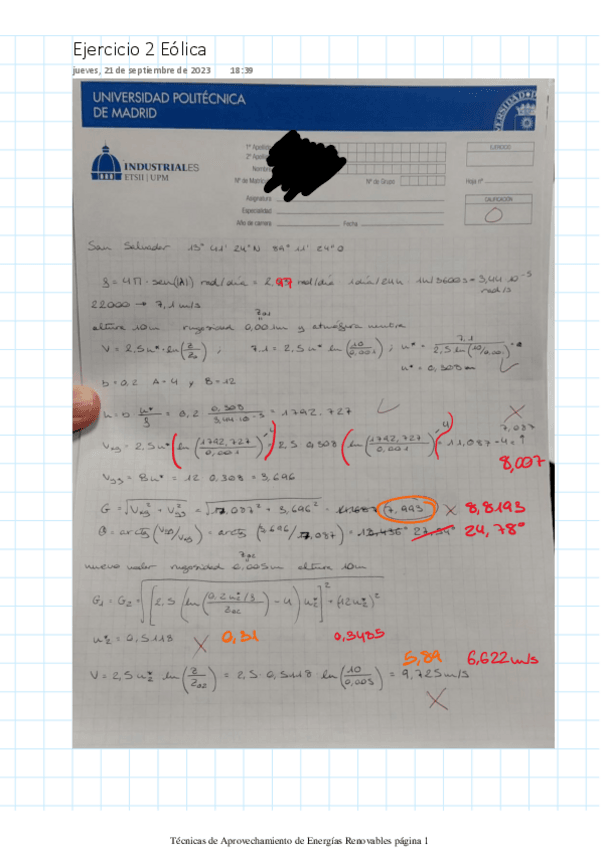 Ejercicio 2 Eólica
jueves, 21 de septiembre de 2023 18:39
UNIVERSIDAD POLITÉCNICA
DE MADRID
INDUSTRIALES
ETSII | UPM
1º Apellido
2º Apellido
Nombre
Nº de Matrícula
Nº de Grupo
Asignatura
Especialidad
Año de carrera
Fecha
EJERCICIO
Hoja nº
CALIFICACIÓN
San Salvador 13° 41' 24" N 89° 11' 24" O
= 4π · sen(|A|) rad/día = 2,97 rad/día 1día/24h · 1h/3600s = 3,44 · 10⁻⁵
rad/s
22000 → 7,1 m/s
z01
altura 10m rugosidad 0,001m y atmósfera neutra
V = 2,5 u* · ln(z/z0) ; 7.1 = 2,5 u* ln(10/0,001) ; u* = 7,1/(2,5 ln(10/0,001))
u* = 0,308
b = 0,2 A = 4 y B = 12
h = b u*/ = 0,2 0,308/3,44·10⁻⁵ = 1792,727
7,087
Vxg = 2,5u* (ln(1792,727/0,001) - 4) = 2,5 · 0,308 (ln(1792,727/0,001) - 4) = 11,087 - 4 =
8,007
Vyg = Bu* = 12 · 0,308 = 3,696
G = √(Vxg² + Vyg²) = √(7,087² + 3,696²) = 7,993 8,8193
= arctg (Vyg/Vxg) = arctg (3,696/7,087) = 24,78°
z02
nuevo valor rugosidad 0.005m altura 10m
G1 = G2 = √([2,5 (ln(0,2u2*/z02) - 4) u2*]² + (12u2*)²)
u2* = 0,5118 0,34 0,3485
5,89 6,622 m/s
V = 2,5 u2* · ln(z/z02) = 2,5 · 0,5118 · ln(10/0,005) = 9,725 m/s
Técnicas de Aprovechamiento de Energías Renovables página 1